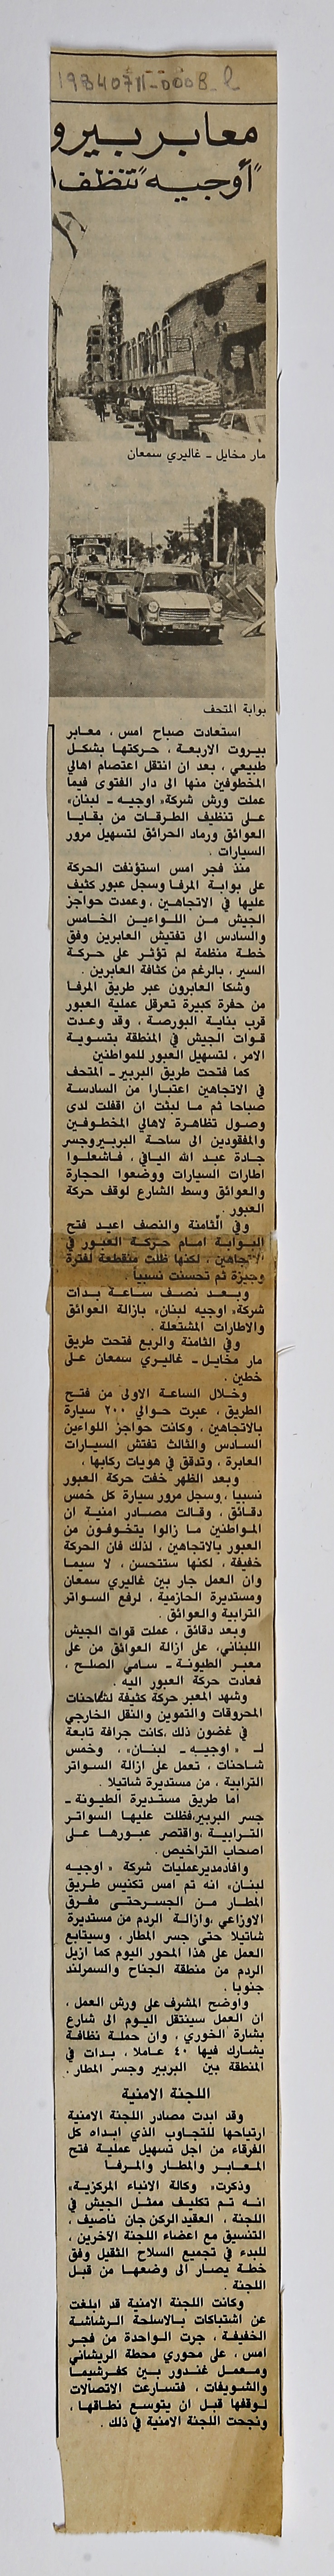 19840711-0008_1
معابر بيرو
"أوجيه" تنظف ا
مار مخايل - غاليري سمعان
بوابة المتحف
استعادت صباح امس ، معابر
بيروت الاربعة ، حركتها بشكل
طبيعي ، بعد ان انتقل اعتصام اهالي
المخطوفين منها الى دار الفتوى فيما
عملت ورش شركة« اوجيه - لبنان»
على تنظيف الطرقات من بقايا
العوائق ورماد الحرائق لتسهيل مرور
السيارات .
منذ فجر امس استؤنفت الحركة
على بوابة المرفا وسجل عبور كثيف
عليها في الاتجاهين ، وعمدت حواجز
الجيش من اللواءين الخامس
والسادس الى تفتيش العابرين وفق
خطة منظمة لم تؤثر على حركة
السير ، بالرغم من كثافة العابرين .
وشكا العابرون عبر طريق المرفا
من حفرة كبيرة تعرقل عملية العبور
قرب بناية البورصة ، وقد وعدت
قوات الجيش في المنطقة بتسوية
الامر ، لتسهيل العبور للمواطنين
كما فتحت طريق البربير - المتحف
في الاتجاهين اعتبارا من السادسة
صباحا ثم ما لبثت ان اقفلت لدى
وصول تظاهرة لاهالي المخطوفين
والمفقودين الى ساحة البربير وجسر
جادة عبد الله اليافي ، فاشعلوا
اطارات السيارات ووضعوا الحجارة
والعوائق وسط الشارع لوقف حركة
العبور .
وفي الثامنة والنصف اعيد فتح
البوابة امام حركة العبور في
الاتجاهين ، لكنها ظلت متقطعة لفترة
وجيزة ثم تحسنت نسبيا .
وبعد نصف ساعة بدات
شركة« اوجيه لبنان» بازالة العوائق
والاطارات المشتعلة .
وفي الثامنة والربع فتحت طريق
مار مخايل - غاليري سمعان على
خطين .
وخلال الساعة الاولى من فتح
الطريق ، عبرت حوالي ٢٠٠ سيارة
بالاتجاهين ، وكانت حواجز اللواءين
السادس والثالث تفتش السيارات
العابرة ، وتدقق في هويات ركابها ،
وبعد الظهر خفت حركة العبور
نسبيا ، وسجل مرور سيارة كل خمس
دقائق ، وقالت مصادر امنية ان
المواطنين ما زالوا يتخوفون من
العبور بالاتجاهين ، لذلك فان الحركة
خفيفة ، لكنها ستتحسن ، لا سيما
وان العمل جار بين غاليري سمعان
ومستديرة الحازمية ، لرفع السواتر
الترابية والعوائق .
وبعد دقائق ، عملت قوات الجيش
اللبناني، على ازالة العوائق من على
معبر الطيونة - سامي الصلح ،
فعادت حركة العبور اليه .
وشهد المعبر حركة كثيفة لشاحنات
المحروقات والتموين والنقل الخارجي
في غضون ذلك ،كانت جرافة تابعة
لـ « اوجيه - لبنان» ، وخمس
شاحنات ، تعمل على ازالة السواتر
الترابية ، من مستديرة شاتيلا .
اما طريق مستديرة الطيونة -
جسر البربير،فظلت عليها السواتر
الترابية ،واقتصر عبورها على
اصحاب التراخيص .
وافادمديرعمليات شركة « اوجيه
لبنان» انه تم امس تكنيس طريق
المطار من الجسرحتى مفرق
الاوزاعي ،وازالة الردم من مستديرة
شاتيلا حتى جسر المطار ، وسيتابع
العمل على هذا المحور اليوم كما ازيل
الردم من منطقة الجناح والسمرلند
جنوبا .
واوضح المشرف على ورش العمل ،
ان العمل سينتقل اليوم الى شارع
بشارة الخوري ، وان حملة نظافة
يشارك فيها ٤٠ عاملا ، بدات في
المنطقة بين البربير وجسر المطار .
اللجنة الامنية
وقد ابدت مصادر اللجنة الامنية
ارتياحها للتجاوب الذي ابداه كل
الفرقاء من اجل تسهيل عملية فتح
المعابر والمطار والمرفا
وذكرت« وكالة الانباء المركزية»
انه تم تكليف ممثل الجيش في
اللجنة ، العقيد الركن جان ناصيف ،
التنسيق مع اعضاء اللجنة الآخرين ،
للبدء في تجميع السلاح الثقيل وفق
خطة يصار الى وضعها من قبل
اللجنة .
وكانت اللجنة الامنية قد ابلغت
عن اشتباكات بالاسلحة الرشاشة
الخفيفة ، جرت الواحدة من فجر
امس ، على محوري محطة الريشاني
ومعمل غندور بين كفرشيما
والشويفات ، فتسارعت الاتصالات
لوقفها قبل ان يتوسع نطاقها ،
ونجحت اللجنة الامنية في ذلك .